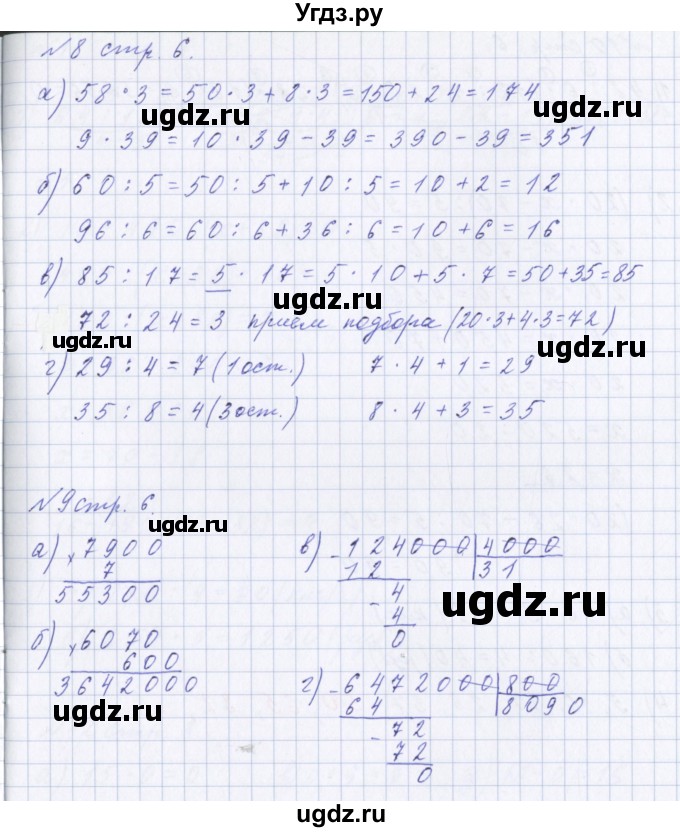 Угдз.ру
№8 стр. 6.
а) 58 · 3 = 50 · 3 + 8 · 3 = 150 + 24 = 174
ugdz.ru ugdz.ru
9 · 39 = 10 · 39 - 39 = 390 - 39 = 351
б) 60 : 5 = 50 : 5 + 10 : 5 = 10 + 2 = 12
96 : 6 = 60 : 6 + 36 : 6 = 10 + 6 = 16
в) 85 : 17 = 5 · 17 = 5 · 10 + 5 · 7 = 50 + 35 = 85
ugdz.ru
72 : 24 = 3 приём подбора (20·3+4·3=72)
ugdz.ru
г) 29 : 4 = 7 (1 ост.) 7 · 4 + 1 = 29
35 : 8 = 4 (3 ост.) 8 · 4 + 3 = 35
№9 стр. 6.
ugdz.ru
а) × 7900
7
55300
б) × 6070
600
3642000
ugdz.ru
в) - 124000 | 4000
12 | 31
- 4
4
0
ugdz.ru
г) - 6472000 | 800
64 | 8090
- 72
72
0
ugdz.ru